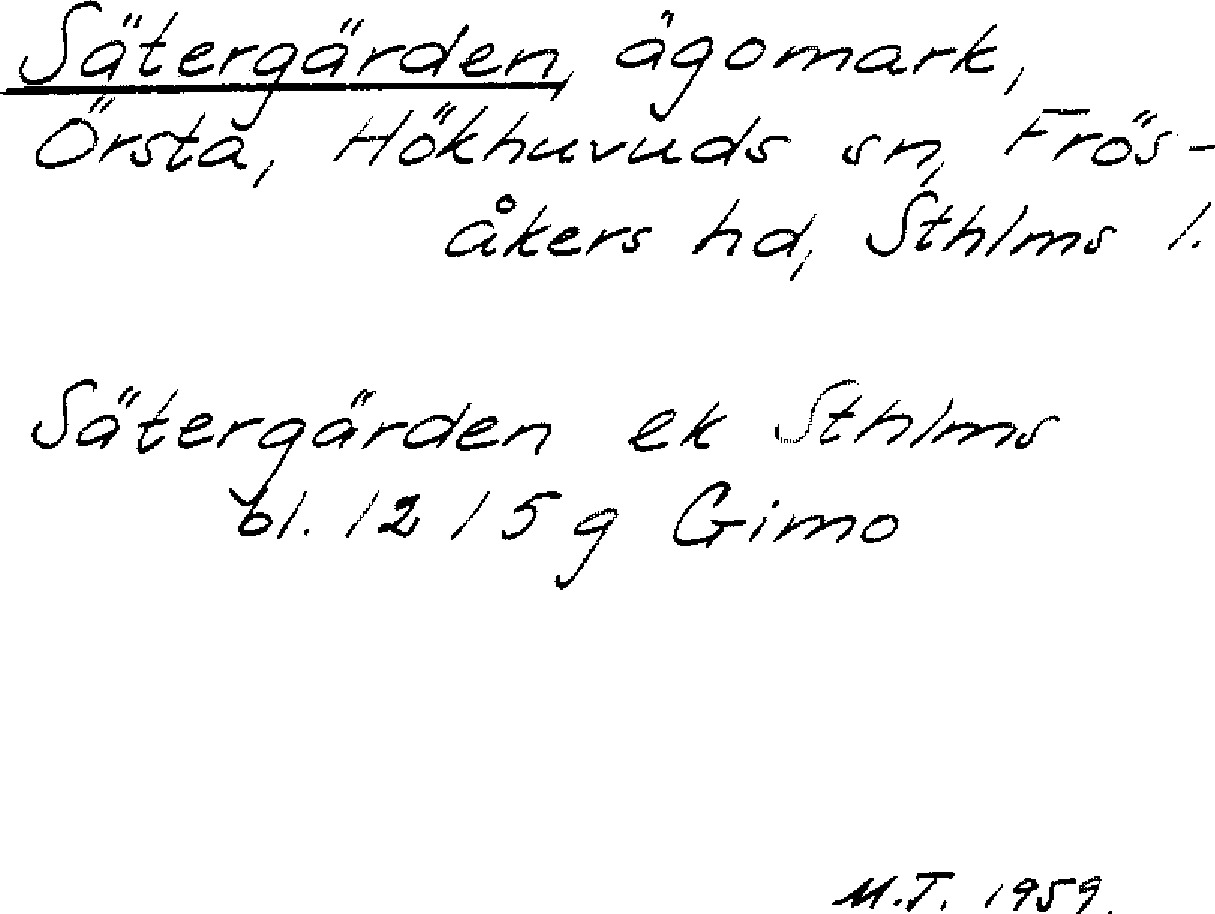 Sätergärden, ägomark,
Örsta, Hökhuvuds sn, Frös-
åkers hd, Sthlms l.
Sätergärden ek Sthlms
bl. 12 I 5g Gimo
M.T. 1959.